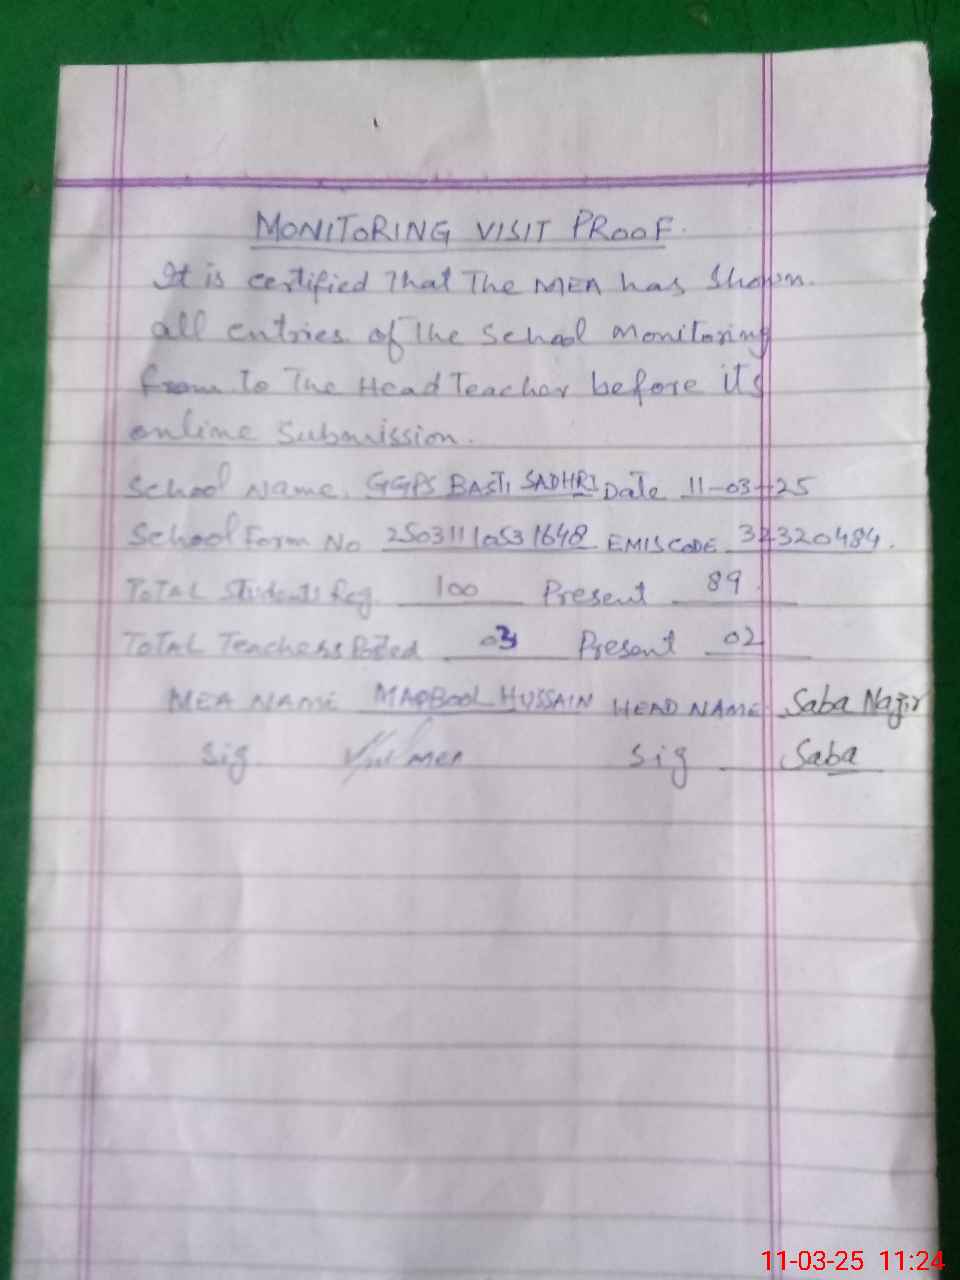 MONITORING VISIT PROOF.
It is certified That The MEA has shown.
all entries of The School monitoring
from To The Head Teacher before its
online Submission.
School Name. GGPS BASTI SADHRI Date 11-03-25
School Form No 25031110531648 EMIS CODE 32320484.
TOTAL Students Reg. 100 Present 89
TOTAL Teachers Posted 03 Present 02
MEA NAME MAQBOOL HUSSAIN HEAD NAME Saba Nazir
Sig mea Sig Saba
11-03-25 11:24